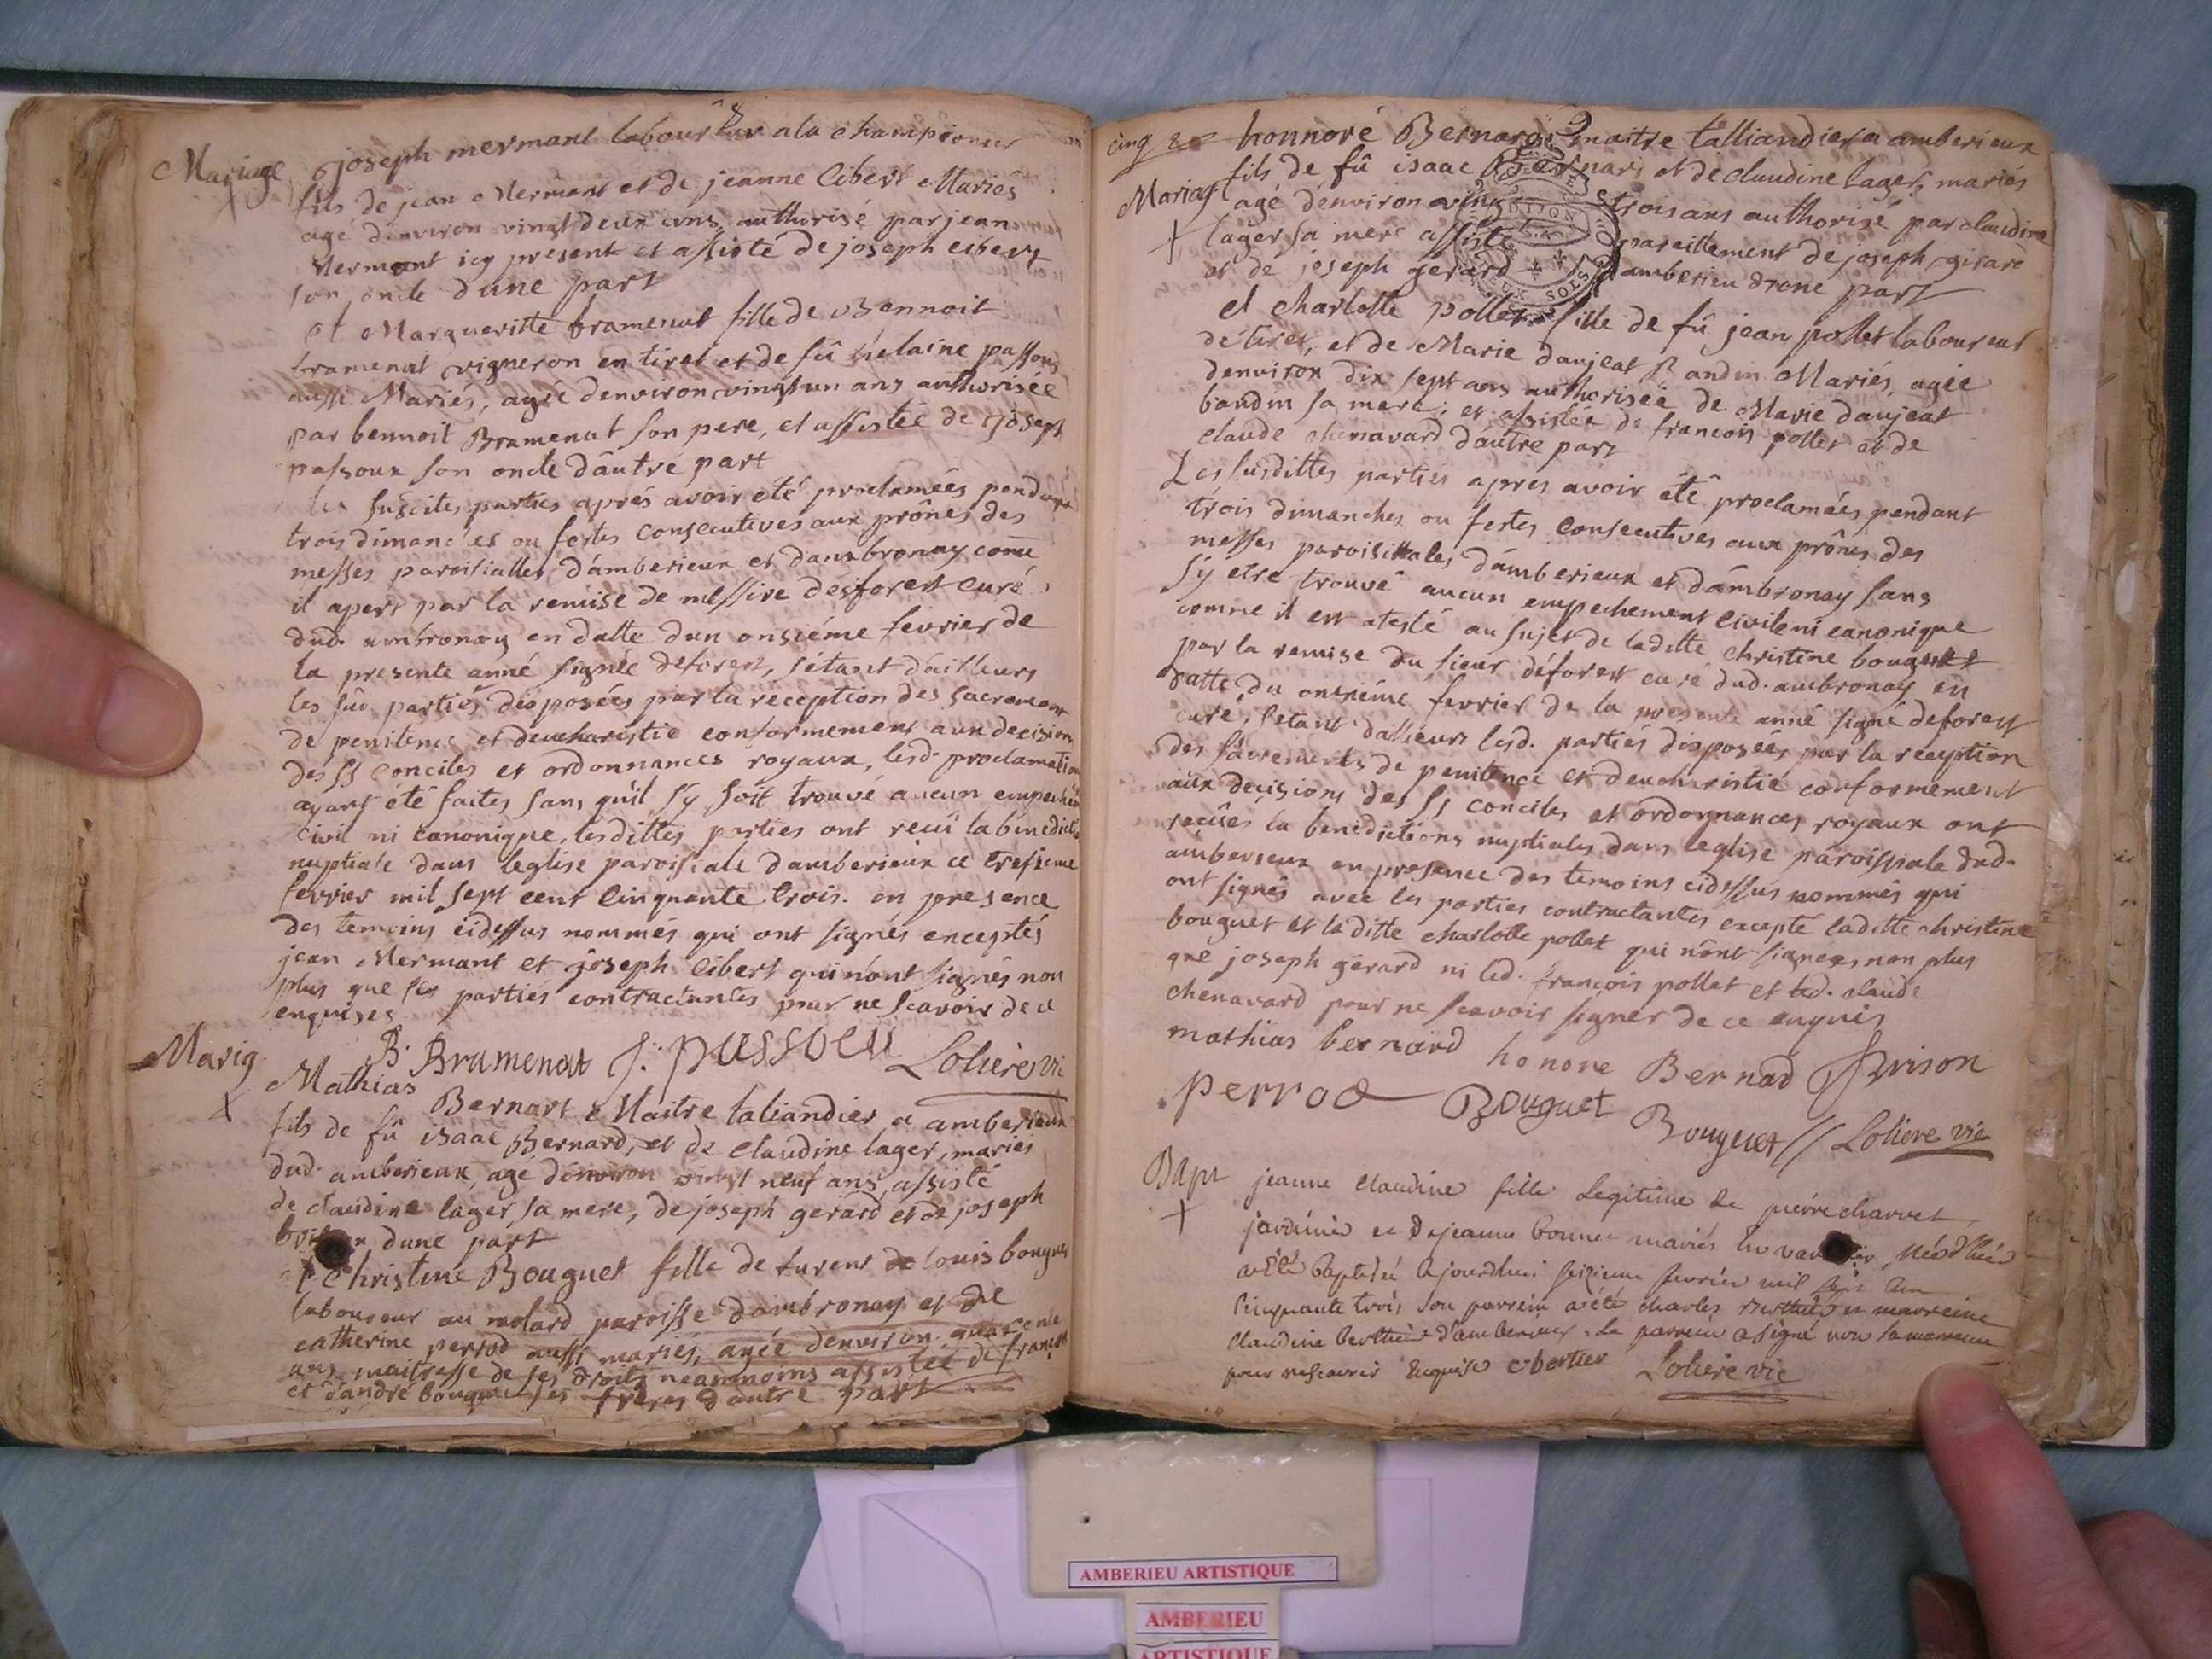 8
Mariage
joseph mermant laboureur a la championer
fils de jean Mermant et de jeanne Cibert Mariés
agé denviron vingt deux ans, authorisé par jean
Mermant icy present et assisté de joseph Cibert
son oncle dune part
et Margueritte bramenat fille de Bennoit
bramenat vigneron en tiret et de fû helaine passoux
aussi Mariés, agée denviron vingt un ans authorisée
par bennoit Bramenat son pere, et assistée de josept
passoux son oncle dâutre part
les suscites parties aprés avoir eté proclamées pendant
trois dimanches ou festes consecutives aux prônes des
messes paroisialles dâmberieux et dambronay come
il apert par la remise de messire desforest curé
dud. ambronay en datte dun onsiéme fevrier de
la presente anné signée deforest, sétant dailleurs
les sud. partiés disposées par la réception des sacrement
de penitence et deucharistie conformement aux decisions
des SS conciles et ordonnances royaux, lesd. proclamations
ayant été faites sans quil sy soit trouvé aucun empechem
civil ni canonique, lesdittes parties ont recu la benedictio
nuptiale dans leglise paroisiale damberieux ce tresieme
fevrier mil sept cent Cinquante trois. en presence
des temoins cidessus nommés qui ont signés exceptés
jean Mermant et joseph Cibert qui n'ont signés non
plus que les parties contractantes pour ne scavoir de ce
enquises
B. Bramenat J. pussoeu Loliere vi
Mariag
Mathias Bernart Maitre taliandier a amberieux
fils de fû isaac Bernard, et de Claudine lager, mariés
dud. amberieux, agé denviron vingt neuf ans, assisté
de claudine lager sa mere, de joseph gerard et de joseph
dune part
et Christine Bouguet fille de furent de louis bouguet
laboureur au molard paroisse dambronay et de
catherine perrod aussi mariés, agée denviron quarente
ans maitresse de ses droits neammoins assistée de françois
et dandré bouguet ses freres dautre part
cinq &
Mariag
honnoré Bernard maitre talliandier a amberieux
fils de fû isaac Bernars et de claudine lager, mariés
agé dénviron ving trois ans authorisé par claudine
lager sa mere assisté pareillement de joseph girard
et de joseph gerard damberieu dune part
et Charlotte pollet fille de fû jean pollet laboureur
de tiret, et de Marie daujeat Mariés, agée
denviron dix sept ans authorisée de Marie daujeat
baudin sa mere; et assistée de francois pollet et de
claude chenavard dautre part
Les susdittes parties apres avoir été proclamées pendant
trois dimanches ou festes consecutives aux prônes des
messes paroisiales dâmberieux et dâmbronay sans
sÿ etre trouvé aucun empechement Civile ni canonique
comme il est atesté au sujet de laditte christine bouguet
par la remise du sieur déforest curé dud. ambronay en
datte du onzième fevrier de la presente anné signé deforest
curé, sétant dallieurs lesd. partiés disposées par la reception
des sacrements de penitence et deucharistié conformement
aux decisions des SS conciles et ordonnances royaux ont
reçûes la benedictions nuptiales dans leglise paroissiale dud.
amberieux en presence des temoins cidessus nommés qui
ont signés avec les parties contractantes excepté laditte christine
bouguet et laditte charlotte pollet qui n'ont signées, non plus
que joseph gerard ni led. françois pollet et led. claude
chenavard pour ne scavoir signer de ce enquis
mathias bernard honore Bernad Brison
perrod Bouguet Bouguet // Loliere vie
Bapt
jeanne Claudine fille legitime de pierre charvet
jardinié et de jeanne bonnet mariés
a été baptisée aujourdhui seizieme fevrier mil sept cen
Cinquante trois son parrein a été charles et marreine
claudine berthier d'amberieux. le parrein a signé non la marreine
pour ne scavoir enquise c bertier Loliere vie
AMBERIEU ARTISTIQUE
AMBERIEU
ARTISTIQUE